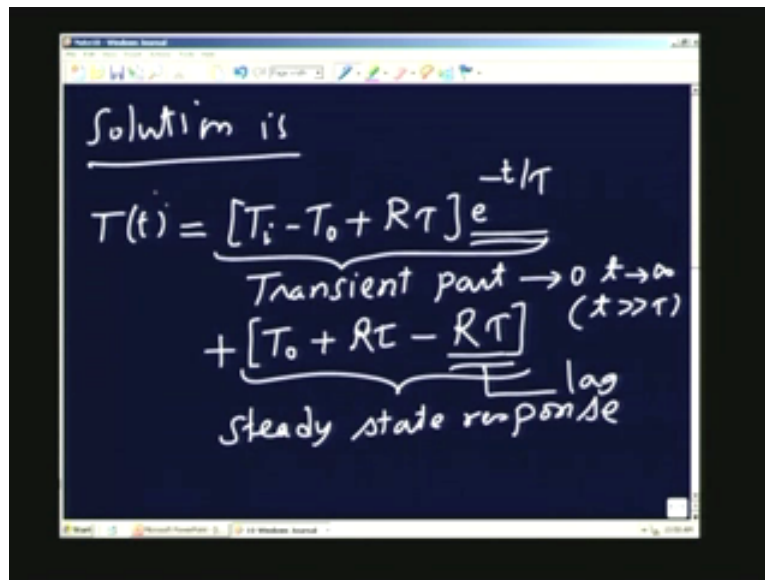 Solution is
T(t) = [Tᵢ - T₀ + Rτ] e^(-t/τ)
Transient part → 0 t → ∞
(t >> τ)
+ [T₀ + Rt - Rτ]
lag
steady state response
Start